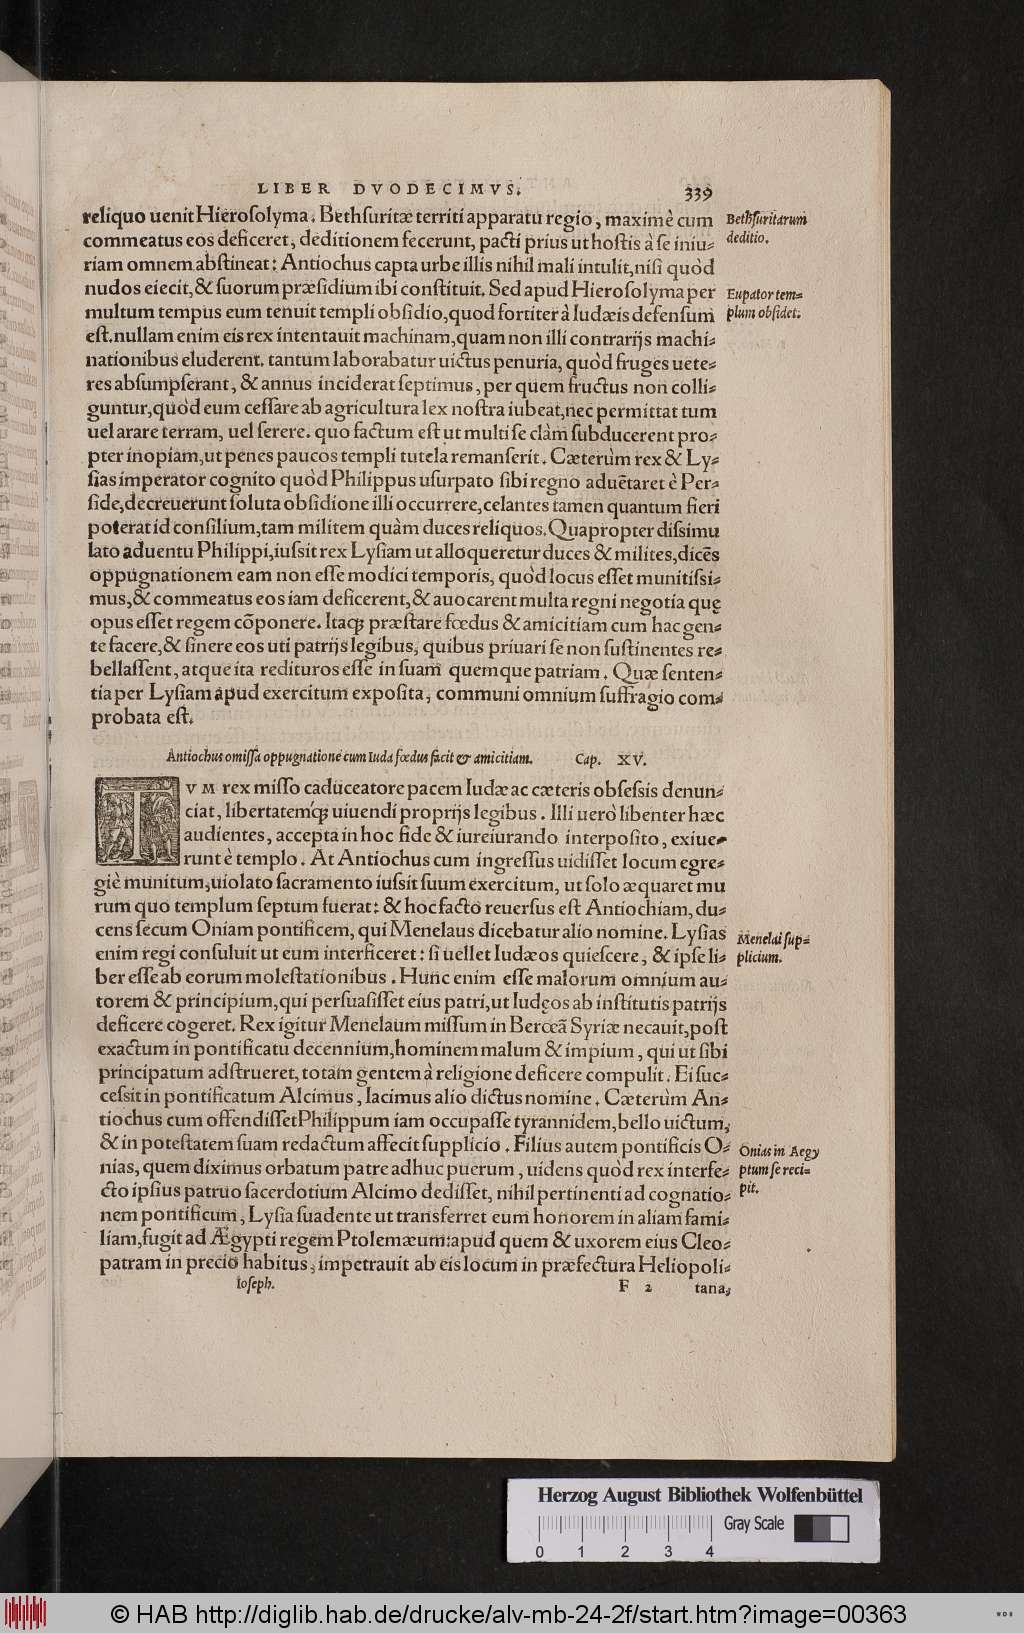 LIBER DVODECIMVS. 339
reliquo uenit Hierosolyma. Bethsuritæ territi apparatu regio, maximè cum
commeatus eos deficeret, deditionem fecerunt, pacti prius ut hostis à se iniu-
riam omnem abstineat: Antiochus capta urbe illis nihil mali intulit, nisi quòd
nudos eiecit, & suorum præsidium ibi constituit. Sed apud Hierosolyma per
multum tempus eum tenuit templi obsidio, quod fortiter à Iudæis defensum
est. nullam enim eis rex intentauit machinam, quam non illi contrarijs machi-
nationibus eluderent. tantum laborabatur uictus penuria, quòd fruges uete-
res absumpserant, & annus inciderat septimus, per quem fructus non colli-
guntur, quòd eum cessare ab agricultura lex nostra iubeat, nec permittat tum
uel arare terram, uel serere. quo factum est ut multi se clàm subducerent pro-
pter inopiam, ut penes paucos templi tutela remanserit. Cæterùm rex & Ly-
sias imperator cognito quòd Philippus usurpato sibi regno aduētaret è Per-
side, decreuerunt soluta obsidione illi occurrere, celantes tamen quantum fieri
poterat id consilium, tam militem quàm duces reliquos. Quapropter dissimu
lato aduentu Philippi, iussit rex Lysiam ut alloqueretur duces & milites, dicēs
oppugnationem eam non esse modici temporis, quòd locus esset munitissi-
mus, & commeatus eos iam deficerent, & auocarent multa regni negotia quę
opus esset regem cōponere. Itaq; præstare fœdus & amicitiam cum hac gen-
te facere, & sinere eos uti patrijs legibus, quibus priuari se non sustinentes re-
bellassent, atque ita redituros esse in suam quemque patriam. Quæ senten-
tia per Lysiam apud exercitum exposita, communi omnium suffragio com-
probata est.
Bethsuritarum
deditio.
Eupator tem-
plum obsidet.
Antiochus omissa oppugnatione cum Iuda fœdus facit & amicitiam. Cap. XV.
TVM rex misso caduceatore pacem Iudæ ac cæteris obsessis denun-
ciat, libertatemq́; uiuendi proprijs legibus. Illi uerò libenter hæc
audientes, accepta in hoc fide & iureiurando interposito, exiue-
runt è templo. At Antiochus cum ingressus uidisset locum egre-
giè munitum, uiolato sacramento iussit suum exercitum, ut solo æquaret mu
rum quo templum septum fuerat: & hoc facto reuersus est Antiochiam, du-
cens secum Oniam pontificem, qui Menelaus dicebatur alio nomine. Lysias
enim regi consuluit ut eum interficeret: si uellet Iudæos quiescere, & ipse li-
ber esse ab eorum molestationibus. Hunc enim esse malorum omnium au-
torem & principium, qui persuasisset eius patri, ut Iudęos ab institutis patrijs
deficere cogeret. Rex igitur Menelaum missum in Berœã Syriæ necauit, post
exactum in pontificatu decennium, hominem malum & impium, qui ut sibi
principatum adstrueret, totam gentem à religione deficere compulit. Ei suc-
cessit in pontificatum Alcimus, Iacimus alio dictus nomine. Cæterùm An-
tiochus cum offendisset Philippum iam occupasse tyrannidem, bello uictum,
& in potestatem suam redactum affecit supplicio. Filius autem pontificis O-
nias, quem diximus orbatum patre adhuc puerum, uidens quòd rex interfe-
cto ipsius patruo sacerdotium Alcimo dedisset, nihil pertinenti ad cognatio-
nem pontificum, Lysia suadente ut transferret eum honorem in aliam fami-
liam, fugit ad Ægypti regem Ptolemæum: apud quem & uxorem eius Cleo-
patram in precio habitus, impetrauit ab eis locum in præfectura Heliopoli-
Menelai sup-
plicium.
Onias in Aegy
ptum se reci-
pit.
Ioseph. F 2 tana,
Herzog August Bibliothek Wolfenbüttel
Gray Scale
0 1 2 3 4
© HAB http://diglib.hab.de/drucke/alv-mb-24-2f/start.htm?image=00363